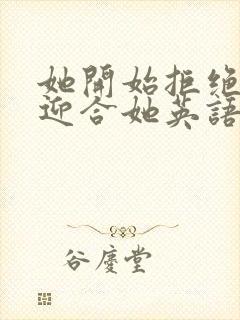 她開始拒绝
迎合她英語
谷慶堂